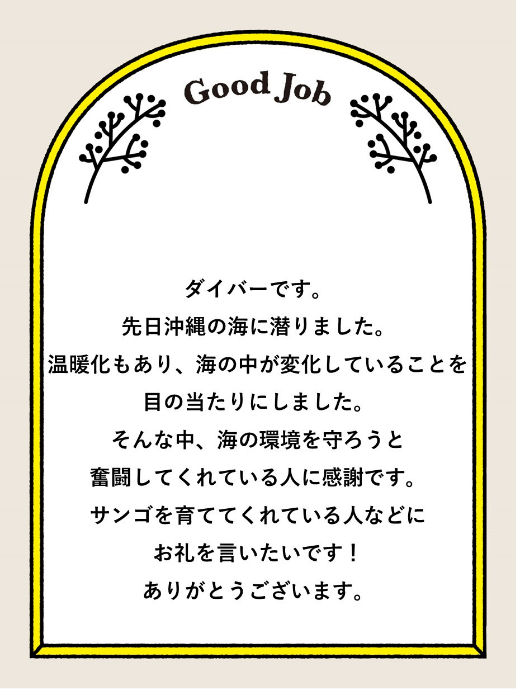 Good Job
ダイバーです。
先日沖縄の海に潜りました。
温暖化もあり、海の中が変化していることを
目の当たりにしました。
そんな中、海の環境を守ろうと
奮闘してくれている人に感謝です。
サンゴを育ててくれている人などに
お礼を言いたいです！
ありがとうございます。